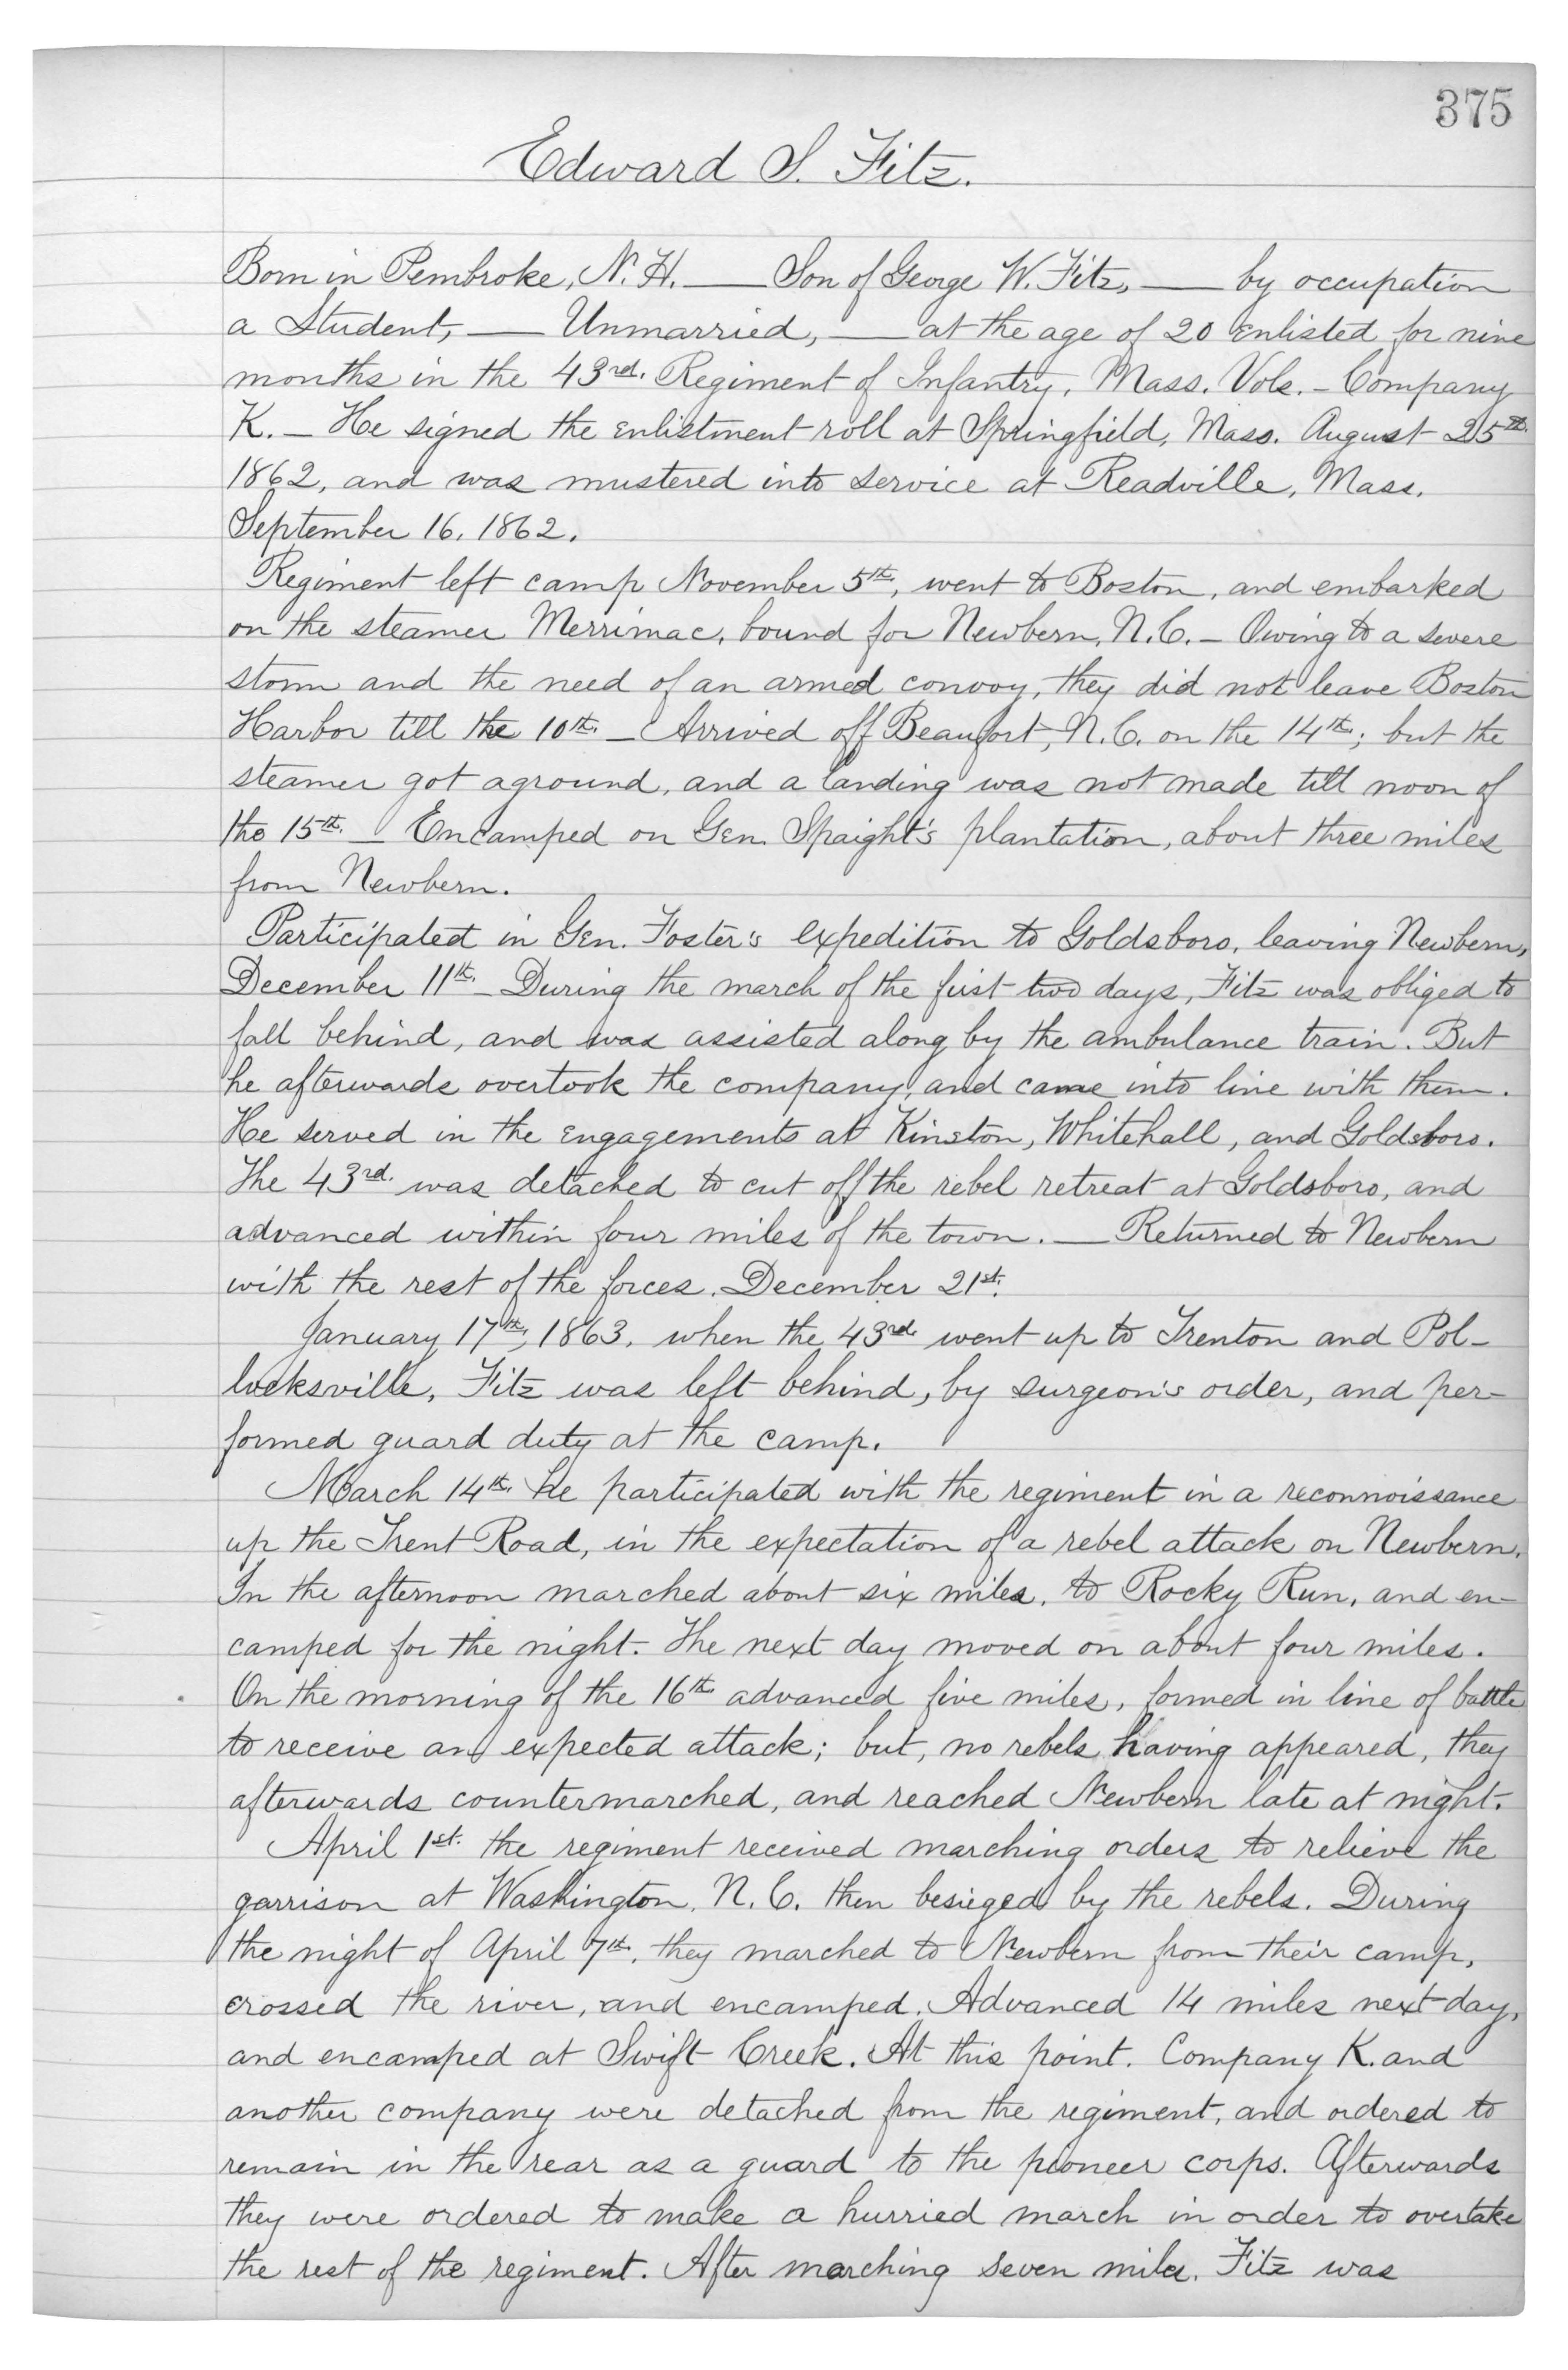 375
Edward S. Fitz.
Born in Pembroke, N.H. — Son of George W. Fitz, — by occupation
a Student, — Unmarried, — at the age of 20 enlisted for nine
months in the 43rd. Regiment of Infantry, Mass. Vols. - Company
K. - He signed the enlistment roll at Springfield, Mass. August 25th.
1862, and was mustered into service at Readville, Mass.
September 16, 1862.
Regiment left camp November 5th, went to Boston, and embarked
on the steamer Merrimac, bound for Newbern, N.C. - Owing to a severe
storm and the need of an armed convoy, they did not leave Boston
Harbor till the 10th. - Arrived off Beaufort, N.C. on the 14th.; but the
steamer got aground, and a landing was not made till noon of
the 15th. - Encamped on Gen. Spaight's plantation, about three miles
from Newbern.
Participated in Gen. Foster's expedition to Goldsboro, leaving Newbern,
December 11th. - During the march of the first two days, Fitz was obliged to
fall behind, and was assisted along by the ambulance train. But
he afterwards overtook the company, and came into line with them.
He served in the engagements at Kinston, Whitehall, and Goldsboro.
The 43rd. was detached to cut off the rebel retreat at Goldsboro, and
advanced within four miles of the town. — Returned to Newbern
with the rest of the forces, December 21st.
January 17th, 1863, when the 43rd. went up to Trenton and Pol-
locksville, Fitz was left behind, by surgeon's order, and per-
formed guard duty at the camp.
March 14th. he participated with the regiment in a reconnoissance
up the Trent Road, in the expectation of a rebel attack on Newbern.
In the afternoon marched about six miles, to Rocky Run, and en-
camped for the night. The next day moved on about four miles.
On the morning of the 16th. advanced five miles, formed in line of battle
to receive an expected attack; but, no rebels having appeared, they
afterwards countermarched, and reached Newbern late at night.
April 1st. the regiment received marching orders to relieve the
garrison at Washington, N.C. then besieged by the rebels. During
the night of April 7th. they marched to Newbern from their camp,
crossed the river, and encamped. Advanced 14 miles next day,
and encamped at Swift Creek. At this point, Company K. and
another company were detached from the regiment, and ordered to
remain in the rear as a guard to the pioneer corps. Afterwards
they were ordered to make a hurried march in order to overtake
the rest of the regiment. After marching seven miles, Fitz was